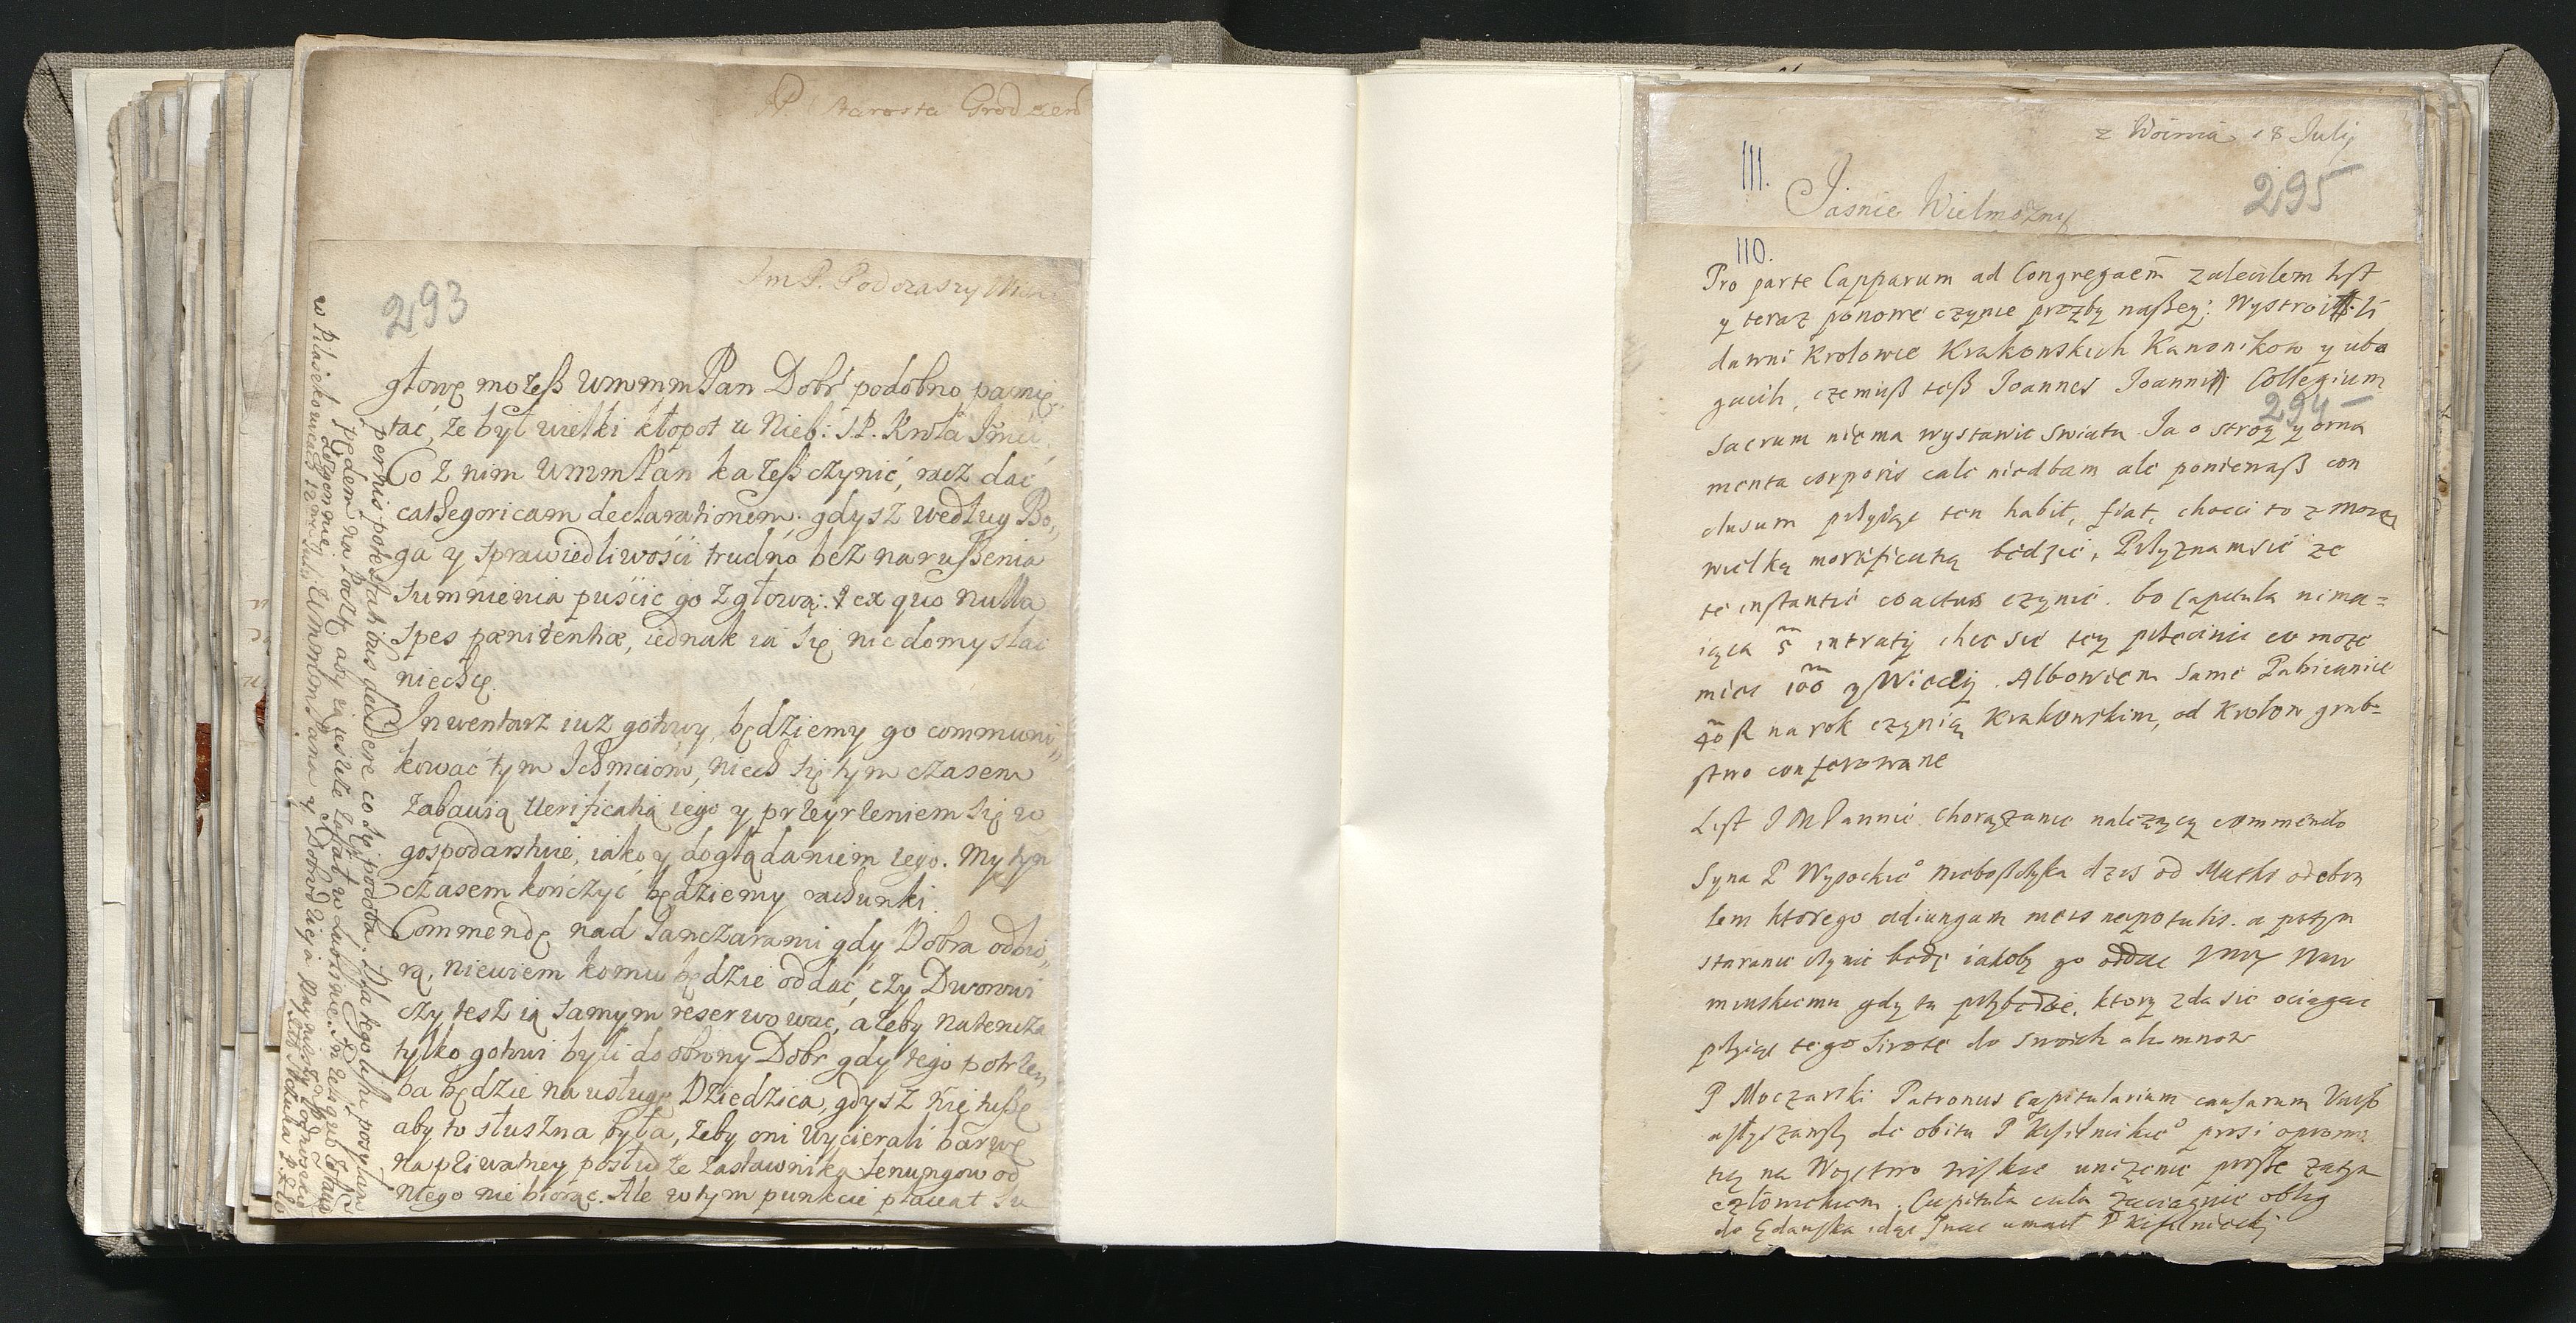 P. Starosta Grodzień
Im P. Podczaszy
293
głowę możeß Ummm Pan Dobr podobno pamię,
tać, że był wielki kłopot u Nieb: S.P. Krola Jmci,
Co z nim Ummm Pan każeß czynić, racz dać
cathegoricam declarationem. gdysz według Bo,,
ga y sprawiedliwości trudno bez narußenia
Sumnienia puścić go z głową: ex quo nulla
Spes pænitentiæ, iednak ia się nic domyslac
niechcę.
Inwentarz iuz gotowy, będziemy go communi,,
kować tym Ichmciom, niech się tym czasem
zabawią verificatią iego y przeyrzeniem się w
gospodarstwie, iako y doglądaniem iego. My tym
czasem kończyć będziemy rachunki.
Commendę nad Janczarami gdy Dobra odbio,,
rą, niewiem komu będzie oddać, czy Dworowi
czy tesz ią samym reserwować, ażeby natencza
tylko gotowi byli do obrony Dobr gdy tego potrze,,
ba będzie na usługę Dziedzica, gdysz nie tußę
aby to słuszna była, żeby oni wycierali barwę
na prìwatney posłudze zastawnika, Jenungow od
niego nie biorąc. Ale w tym punkcie placeat Su
pernis potestatibus gaudere co się podoba. Dla tego tesz posyłam
pędem na Pocztę, aby ią ieszcze zastał w Lubosnie. In reliquo zostaię
Dozgonnie
Ummm Pana y Dobrodzieja
w Pilaszkowicach 12 Julii
z Woinia 18 Julij
III.
295
Jasnie Wielmożny
110.
Pro parte Capparum ad Congregaem zalecilem list
y teraz ponowe czynie prozby naßey: Wystroili
dawni Krolowie Krakowskich Kanonikow y ubo
gacili, czemuß teß Joannes Joannis Collegium
294
sacrum nie ma wystawic swiatu. Ja o stroy y orna
menta corporis cale niedbam ale poniewaß con
clusum przyiąc ten habit, fiat, chocci to z moią
wielką mortificatią będzie, Przyznam sie ze
te instantie coactus czynie. bo Capitula nima=
iąca 5 intraty chce sie tey przeciwic co moze
miec 100 y Wiecey. Albowiem same Pabianice
40 ß na rok czynią Krakowskim, od Krolow grub=
stwo conferowane
List JM Pannie Chorązanie nalezący commendo
Syna P Wysockie° nieboßczyka dzis od Matki odebra
lem ktorego adiungam meis nepotulis. a potym
staranie czynic bedę iakoby go oddac
minskiemu gdy tu przybedzie, ktory zda sie ociągac
przyiąc tego Sirote do swoich alumnow
P Moczarski Patronus Capitularium causarum
usłyszawßy de obitu P Kisielnickie° prosi o promo
tią na Woytowstwo unizenie proße za tym
człowiekiem. Capitula cała zaciągnie oblig
do Gdanska idąc umarł P Kisielnicki